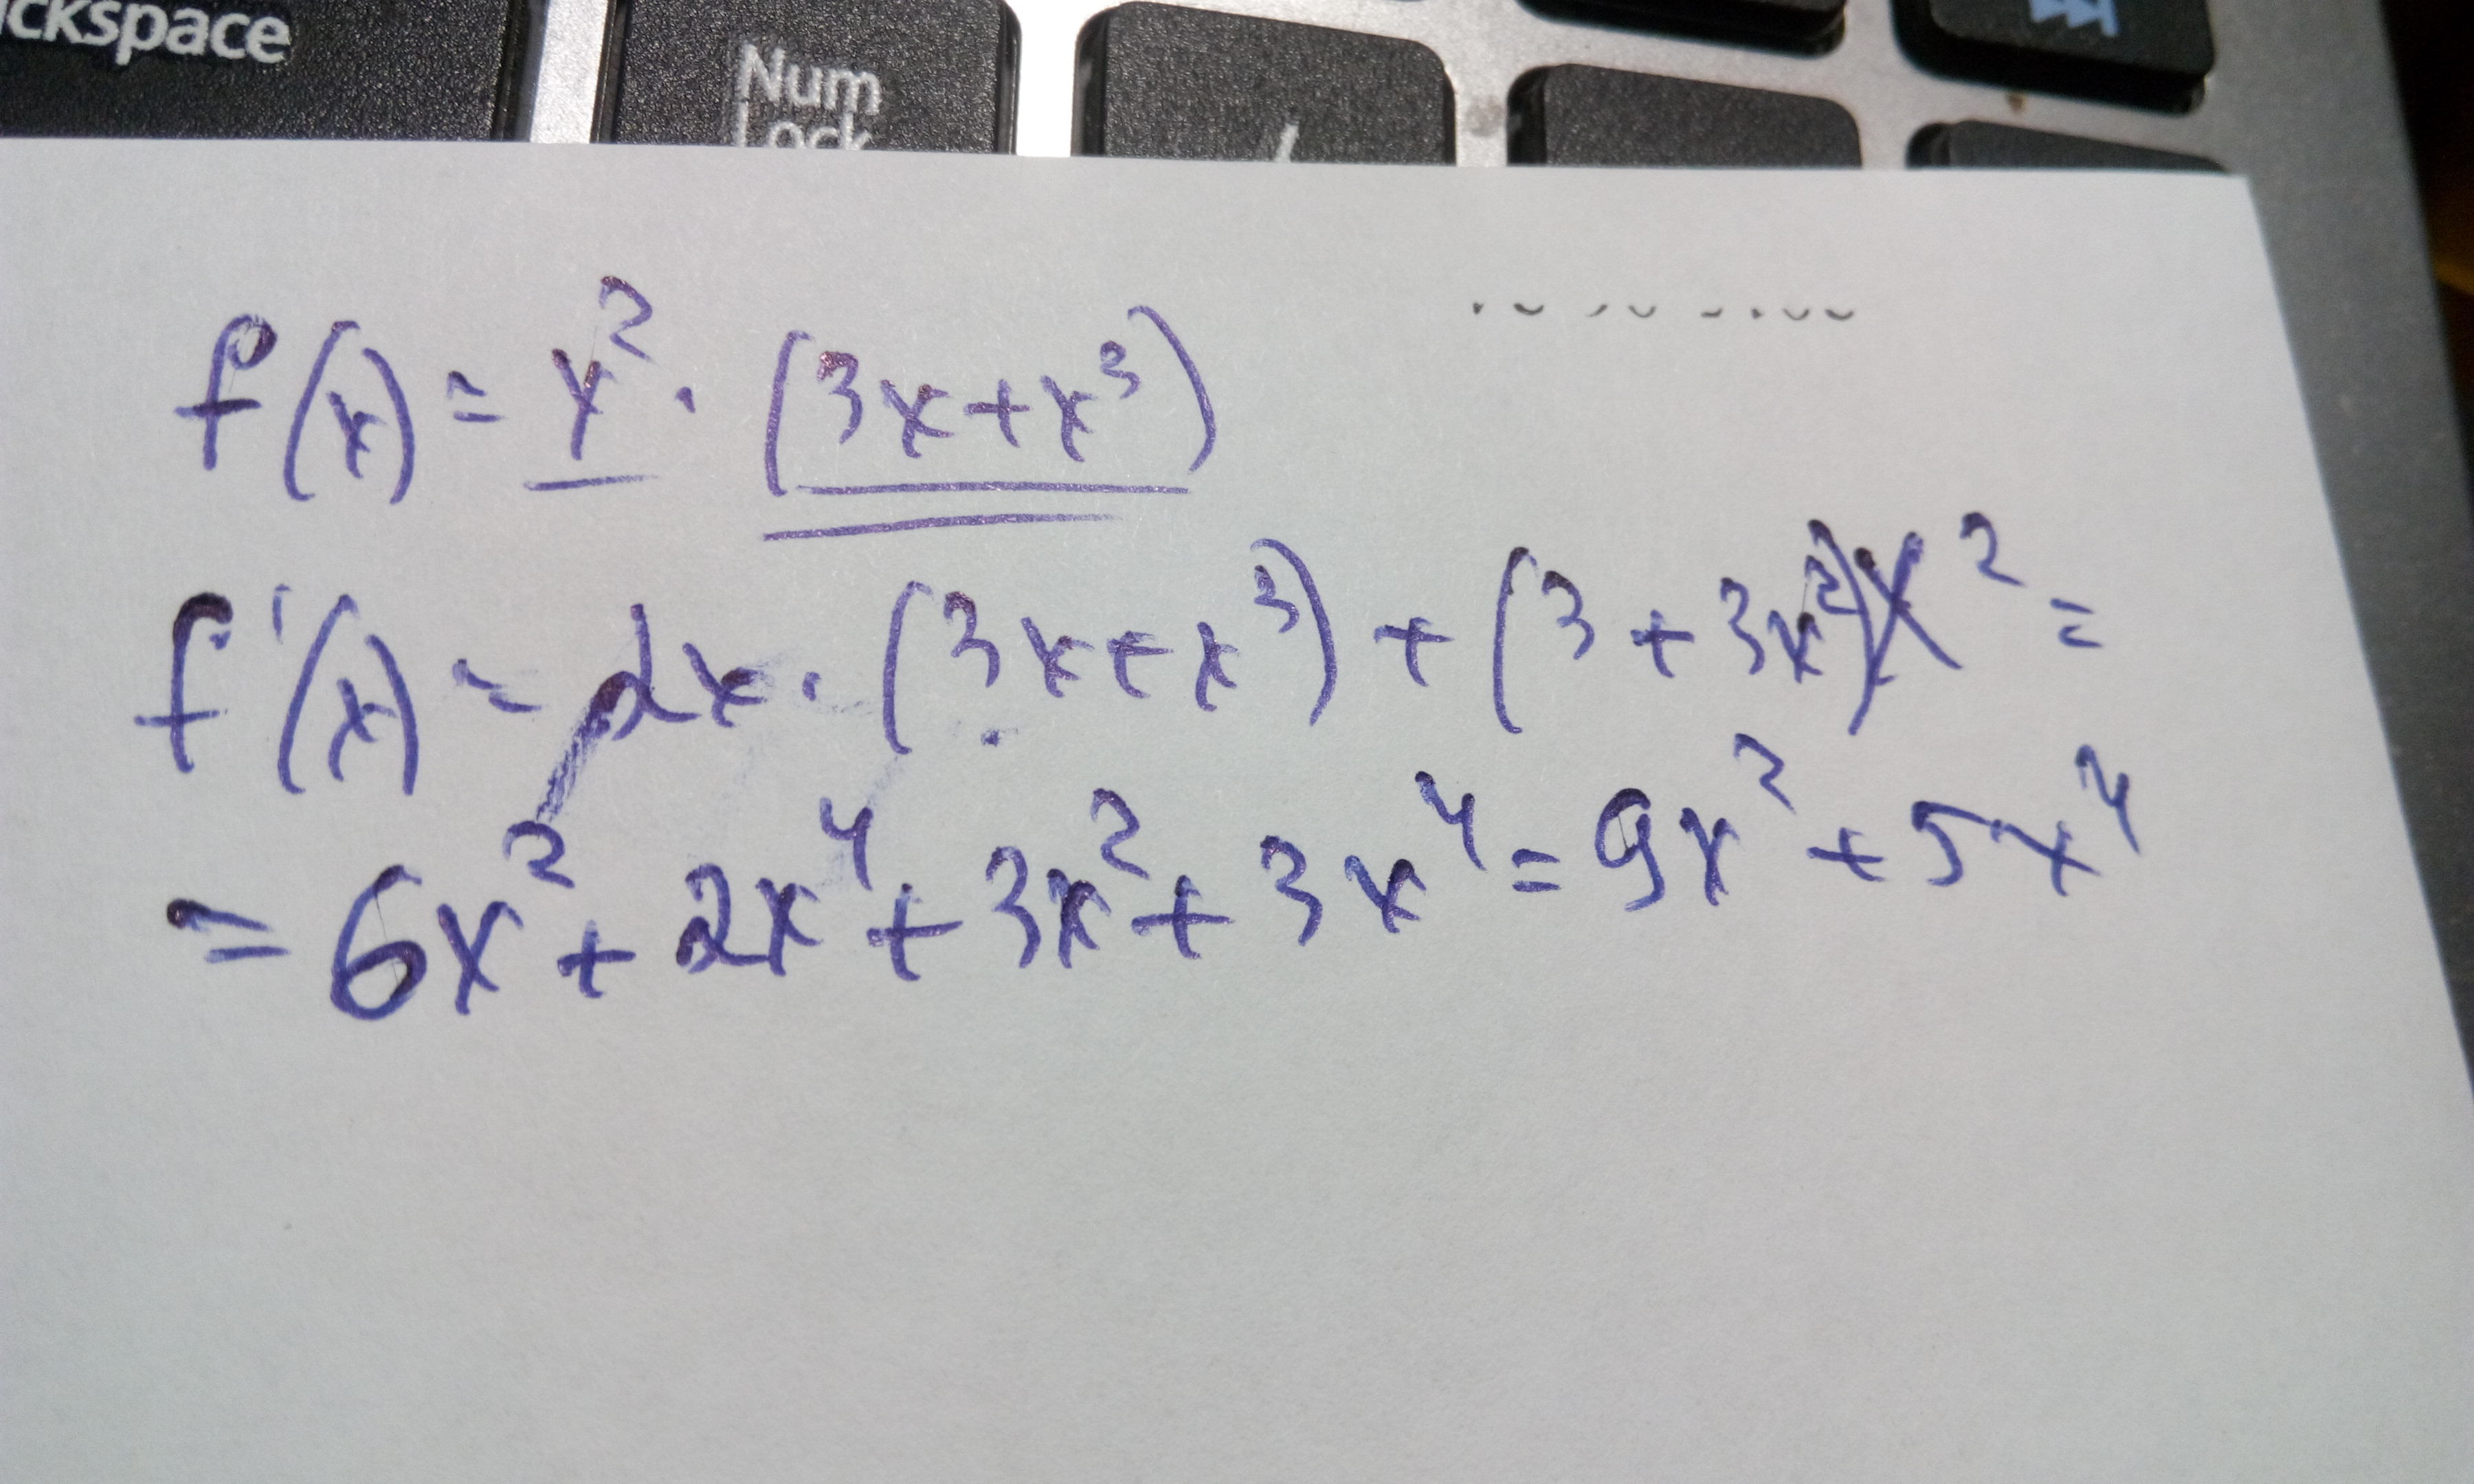 ckspace
Num
Lock
f(x) = x² · (3x+x³)
f'(x) = 2x · (3x+x³) + (3+3x²)x² =
= 6x² + 2x⁴ + 3x² + 3x⁴ = 9x² + 5x⁴